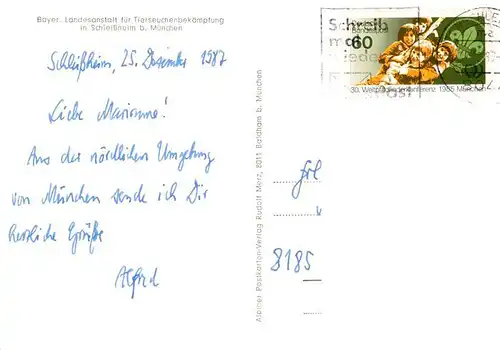 Bayer. Landesanstalt für Tierseuchenbekämpfung
in Schleißheim b. München
Schleißheim, 25. Dezember 1987
Liebe Marianne!
Aus der nördlichen Umgebung
von München sende ich Dir
herzliche Grüße
Alfred
Alpiner Postkarten-Verlag Rudolf Merz, 8011 Baldham b. München
Schreib
mal
wieder
Bundespost
60
30. Weltpfadfinderkonferenz 1985 München
8185